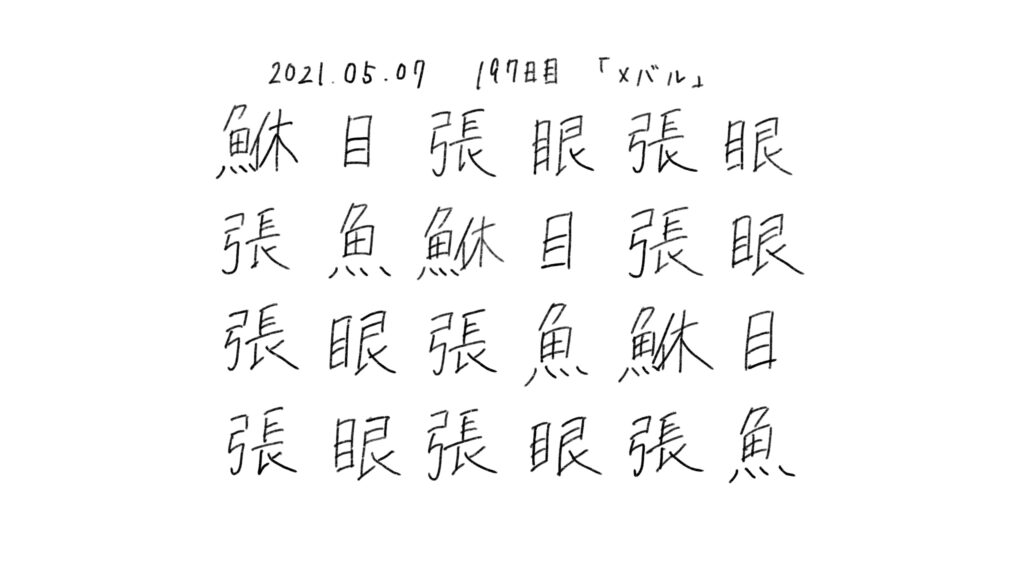 2021.05.07 197日目 「メバル」
鮴 目 張 眼 張 眼
張 魚 鮴 目 張 眼
張 眼 張 魚 鮴 目
張 眼 張 眼 張 魚